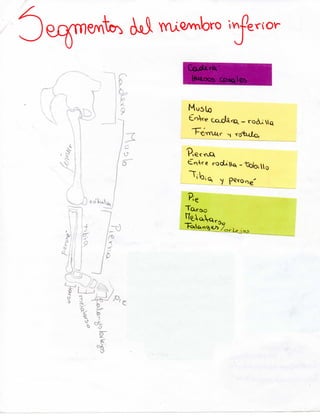 Segmentos del miembro inferior
Cadera
Huesos coxales
Muslo
Entre cadera - rodilla
Fémur y rótula
Pierna
Entre rodilla - Tobillo
Tibia y peroné
Pie
Tarso
Metatarso
Falanges/ortejos
Cadera
Muslo
fémur
rótula
Pierna
Tibia
peroné
Pie
tarso
metatarso
falanges